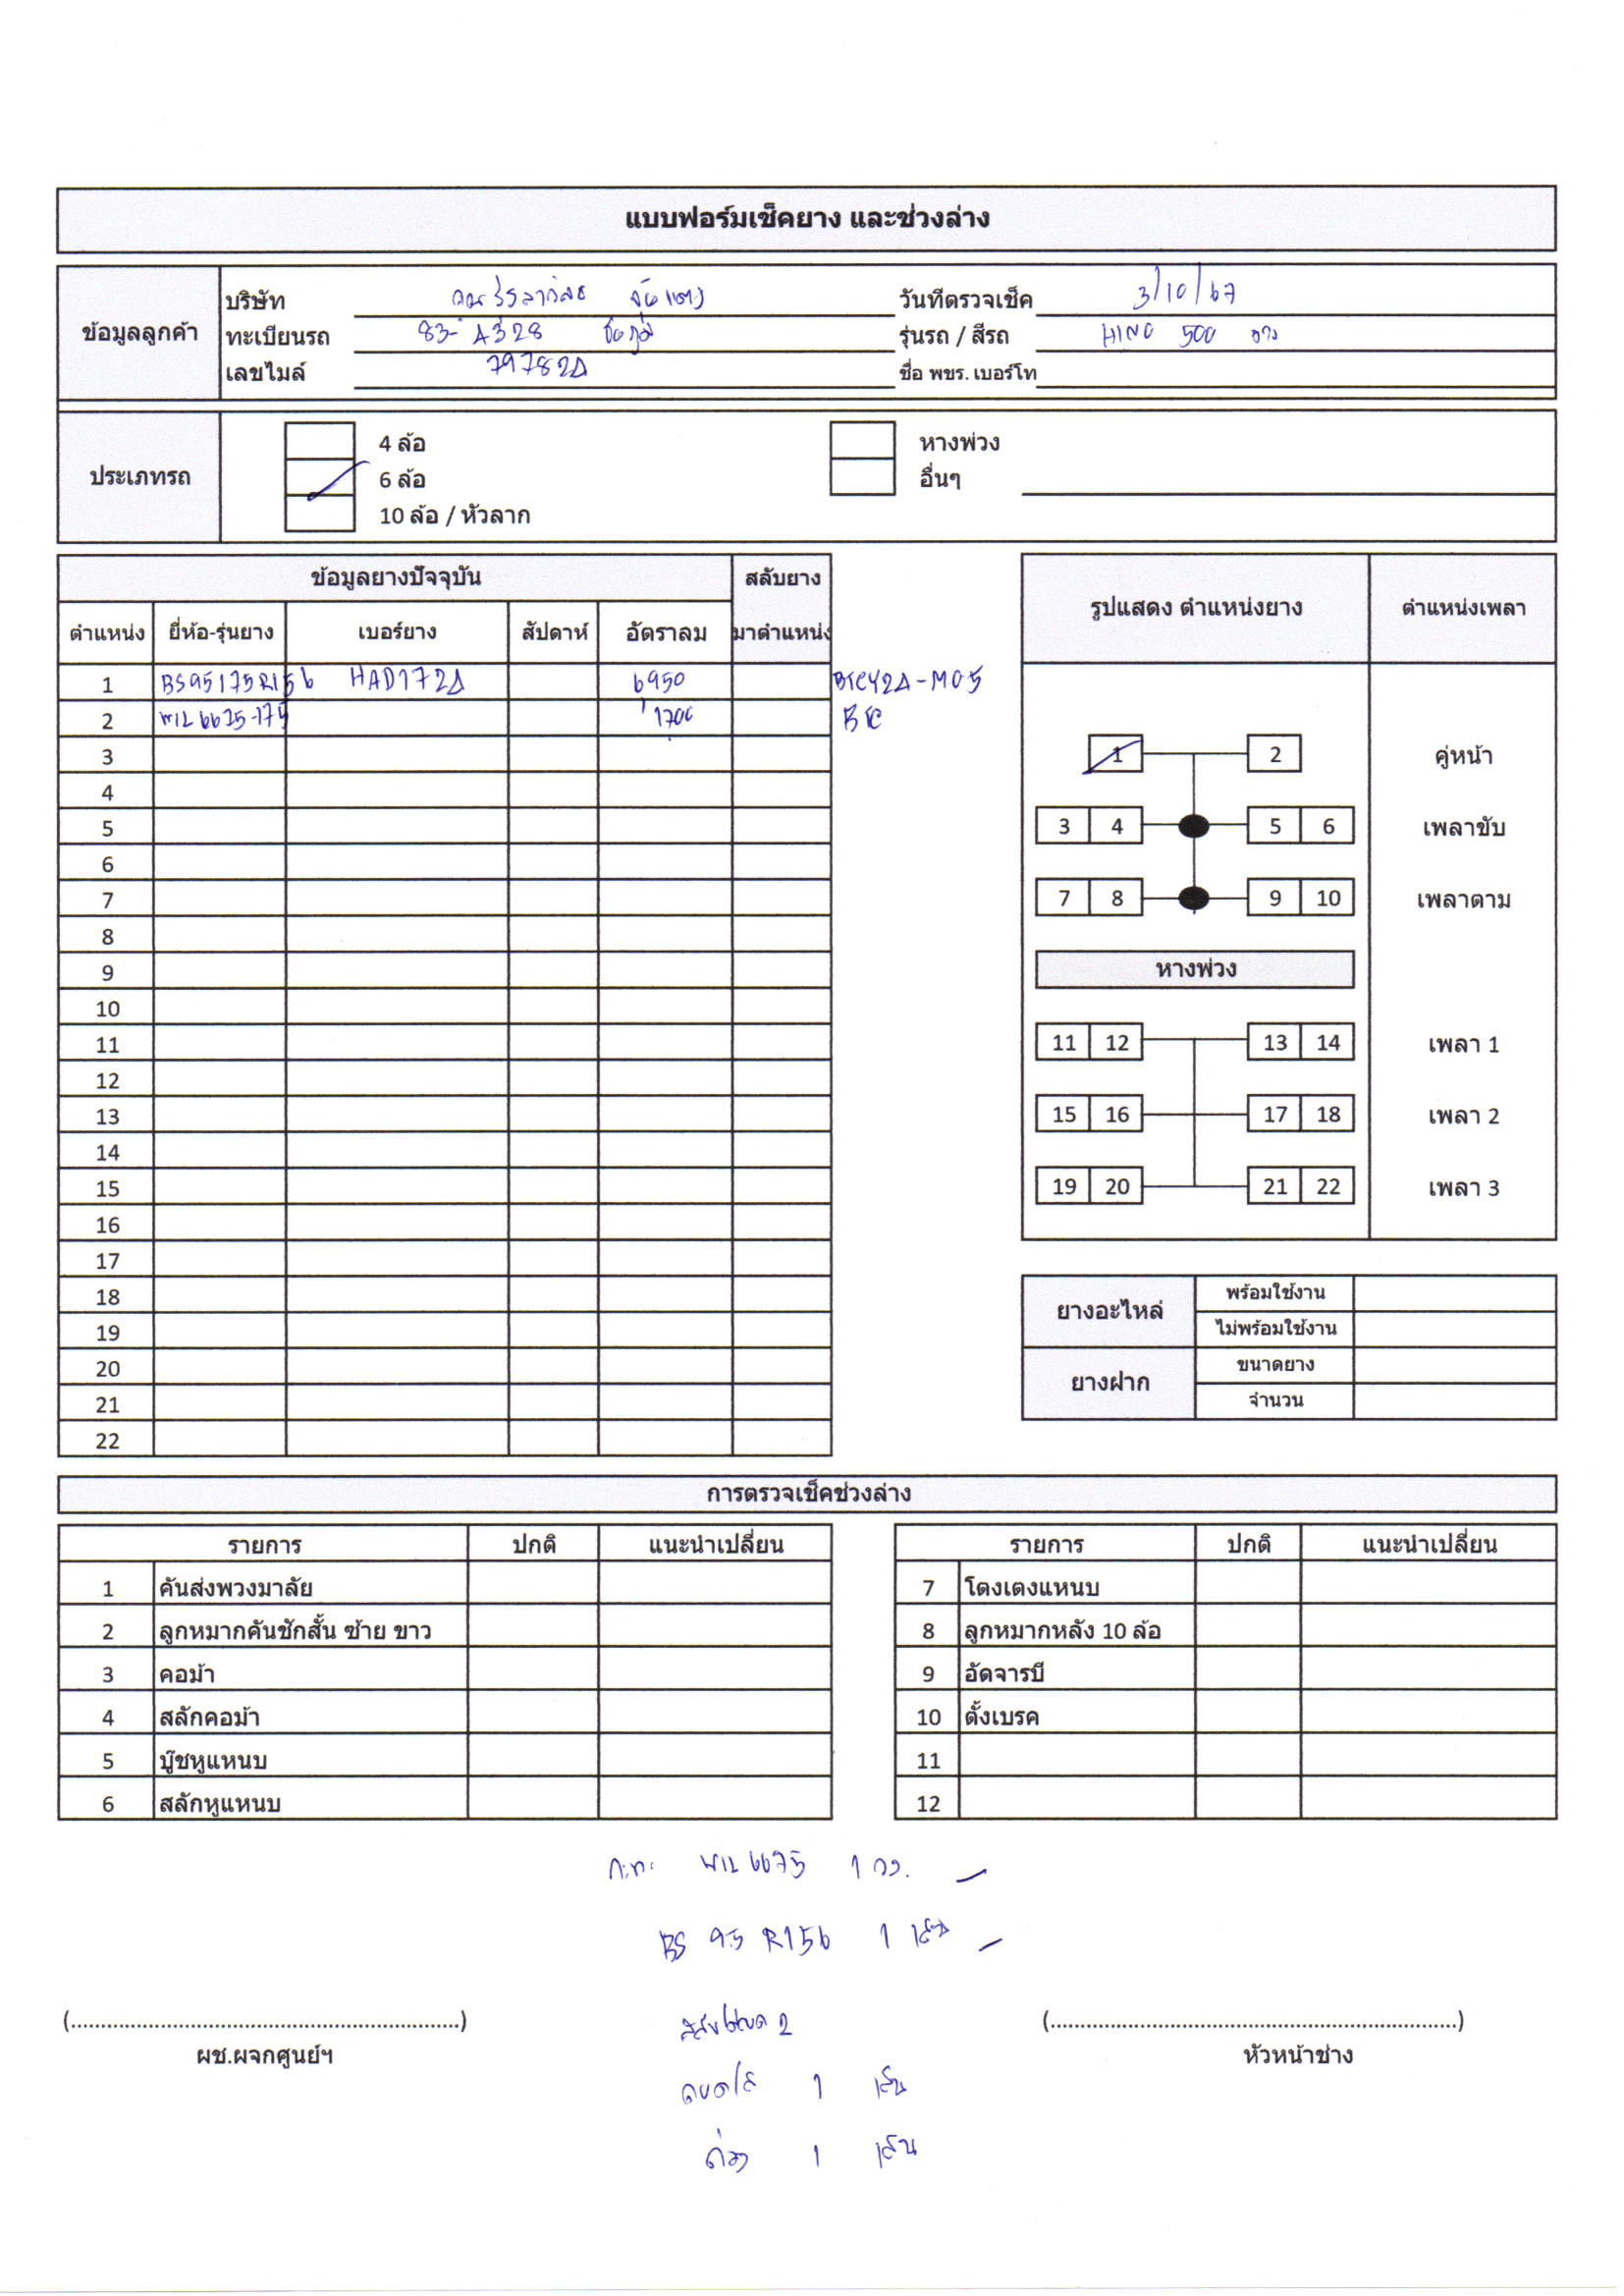 แบบฟอร์มเช็คยาง และช่วงล่าง
ข้อมูลลูกค้า
บริษัท
วันที่ตรวจเช็ค 3/10/67
ทะเบียนรถ 83-4328
รุ่นรถ / สีรถ HINO 500
เลขไมล์ 797824
ชื่อ พขร. เบอร์โท
ประเภทรถ
4 ล้อ
หางพ่วง
6 ล้อ
อื่นๆ
10 ล้อ / หัวลาก
ข้อมูลยางปัจจุบัน สลับยาง
ตำแหน่ง ยี่ห้อ-รุ่นยาง เบอร์ยาง สัปดาห์ อัตราลม มาตำแหน่ง
1 BS95175R156 HAD1724 6950
2 WIL6675-175 1700
3
4
5
6
7
8
9
10
11
12
13
14
15
16
17
18
19
20
21
22
รูปแสดง ตำแหน่งยาง ตำแหน่งเพลา
1 2 คู่หน้า
3 4 5 6 เพลาขับ
7 8 9 10 เพลาตาม
หางพ่วง
11 12 13 14 เพลา 1
15 16 17 18 เพลา 2
19 20 21 22 เพลา 3
ยางอะไหล่ พร้อมใช้งาน
ไม่พร้อมใช้งาน
ยางฝาก ขนาดยาง
จำนวน
การตรวจเช็คช่วงล่าง
รายการ ปกติ แนะนำเปลี่ยน
1 คันส่งพวงมาลัย
2 ลูกหมากคันชักสั้น ซ้าย ขาว
3 คอม้า
4 สลักคอม้า
5 บู๊ชหูแหนบ
6 สลักหูแหนบ
รายการ ปกติ แนะนำเปลี่ยน
7 โตงเตงแหนบ
8 ลูกหมากหลัง 10 ล้อ
9 อัดจารบี
10 ตั้งเบรค
11
12
WIL 6675 1 วง.
BS 95 R156 1 เส้น
2
1 เส้น
1 เส้น
(....................................................................)
ผช.ผจกศูนย์ฯ
(....................................................................)
หัวหน้าช่าง